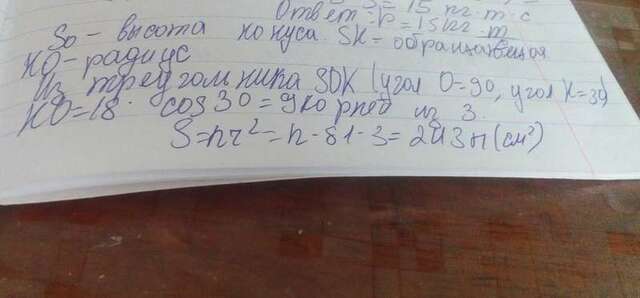 Ответ: p = 15 кг·м
SO - высота конуса SK = обращающая
KO - радиус
Из треугольника SOK (угол O=90, угол K=30)
KO = 18 · cos 30 = 9 корней из 3.
S = пr² = п · 81 · 3 = 243 п (см²)